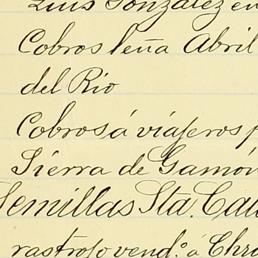 Luis González en
Cobros leña Abril
del Rio
Cobros á viajeros p
Sierra de Gamón
Semillas Sta. Cat
rastrojo vend.º á Chr